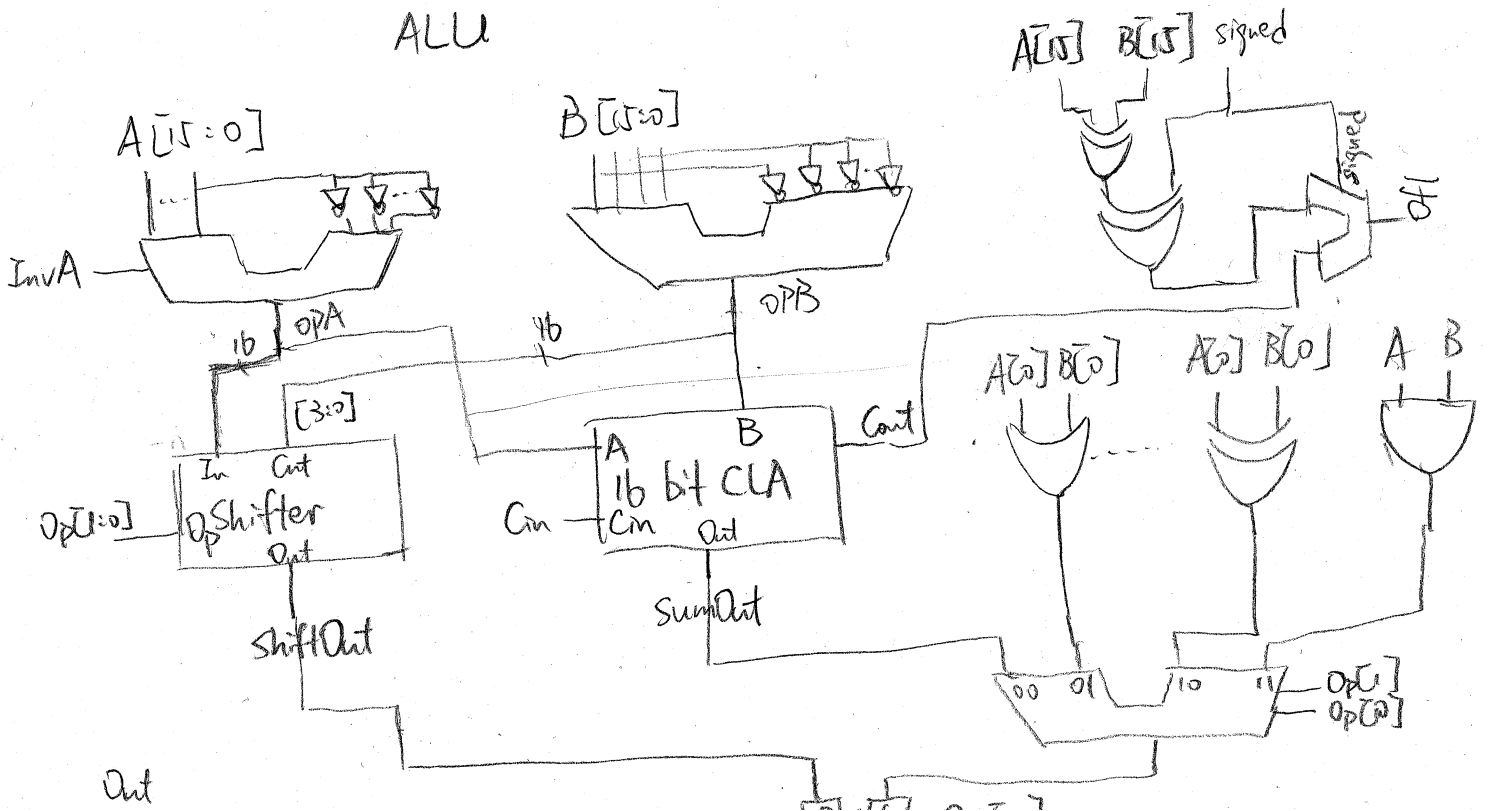 ALU
A[15] B[15] signed
A[15:0]
B[15:0]
signed
Ofl
InvA
OPA
OPB
16
16
[3:0]
A[0] B[0]
A[0] B[0]
A B
In Cnt
Op[1:0]
Op Shifter
Out
A B
16 bit CLA
Cout
Cin
Cin
Out
ShiftOut
SumOut
00 01 10 11
Op[1]
Op[0]
Out